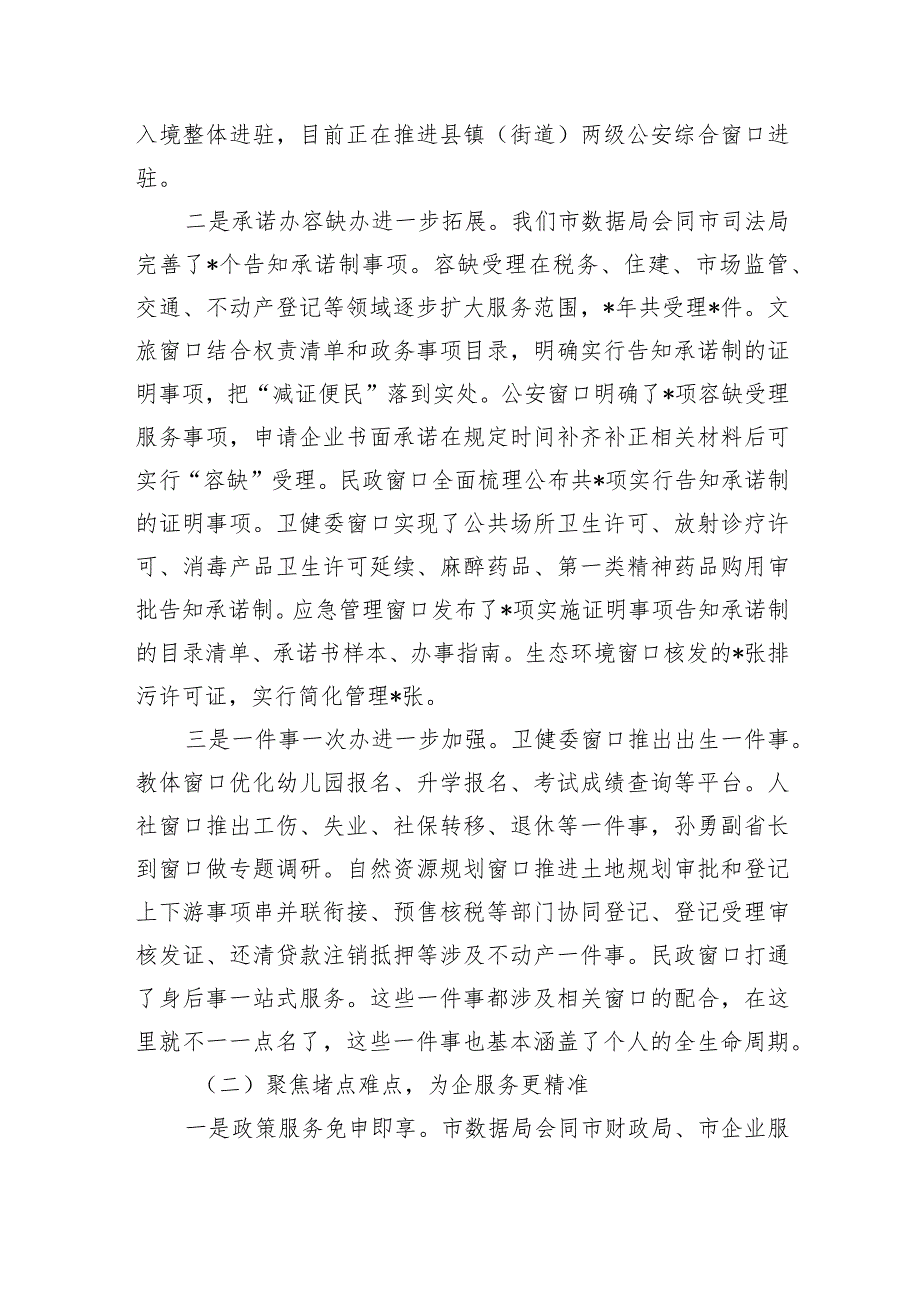 入境整体进驻，目前正在推进县镇（街道）两级公安综合窗口进
驻。
二是承诺办容缺办进一步拓展。我们市数据局会同市司法局
完善了*个告知承诺制事项。容缺受理在税务、住建、市场监管、
交通、不动产登记等领域逐步扩大服务范围，*年共受理*件。文
旅窗口结合权责清单和政务事项目录，明确实行告知承诺制的证
明事项，把“减证便民”落到实处。公安窗口明确了*项容缺受理
服务事项，申请企业书面承诺在规定时间补齐补正相关材料后可
实行“容缺”受理。民政窗口全面梳理公布共*项实行告知承诺制
的证明事项。卫健委窗口实现了公共场所卫生许可、放射诊疗许
可、消毒产品卫生许可延续、麻醉药品、第一类精神药品购用审
批告知承诺制。应急管理窗口发布了*项实施证明事项告知承诺制
的目录清单、承诺书样本、办事指南。生态环境窗口核发的*张排
污许可证，实行简化管理*张。
三是一件事一次办进一步加强。卫健委窗口推出出生一件事。
教体窗口优化幼儿园报名、升学报名、考试成绩查询等平台。人
社窗口推出工伤、失业、社保转移、退休等一件事，孙勇副省长
到窗口做专题调研。自然资源规划窗口推进土地规划审批和登记
上下游事项串并联衔接、预售核税等部门协同登记、登记受理审
核发证、还清贷款注销抵押等涉及不动产一件事。民政窗口打通
了身后事一站式服务。这些一件事都涉及相关窗口的配合，在这
里就不一一点名了，这些一件事也基本涵盖了个人的全生命周期。
（二）聚焦堵点难点，为企服务更精准
一是政策服务免申即享。市数据局会同市财政局、市企业服